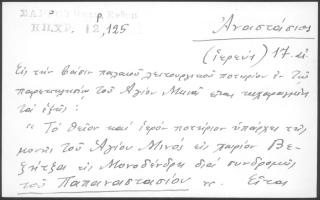 ΗΠ.ΧΡ. 12, 125
Ἀναστάσιος
(ἱερεύς) 17. αι.
Εἰς τὴν βάσιν παλαιοῦ λειτουργικοῦ ποτηρίου ἐν τῷ
παρεκκλησίῳ τοῦ Ἁγίου Μηνᾶ εἶναι κεχαραγμένα
τὰ ἑξῆς:
"Τὸ θεῖον καὶ ἱερόν ποτήριον ὑπάρχει τῆς
μονῆς τοῦ Ἁγίου Μινᾶ εἰς χωρίον Βε-
ζήτζα εἰς Μονοδένδρι διά συνδρομῆς
τοῦ Παπαναστασίου